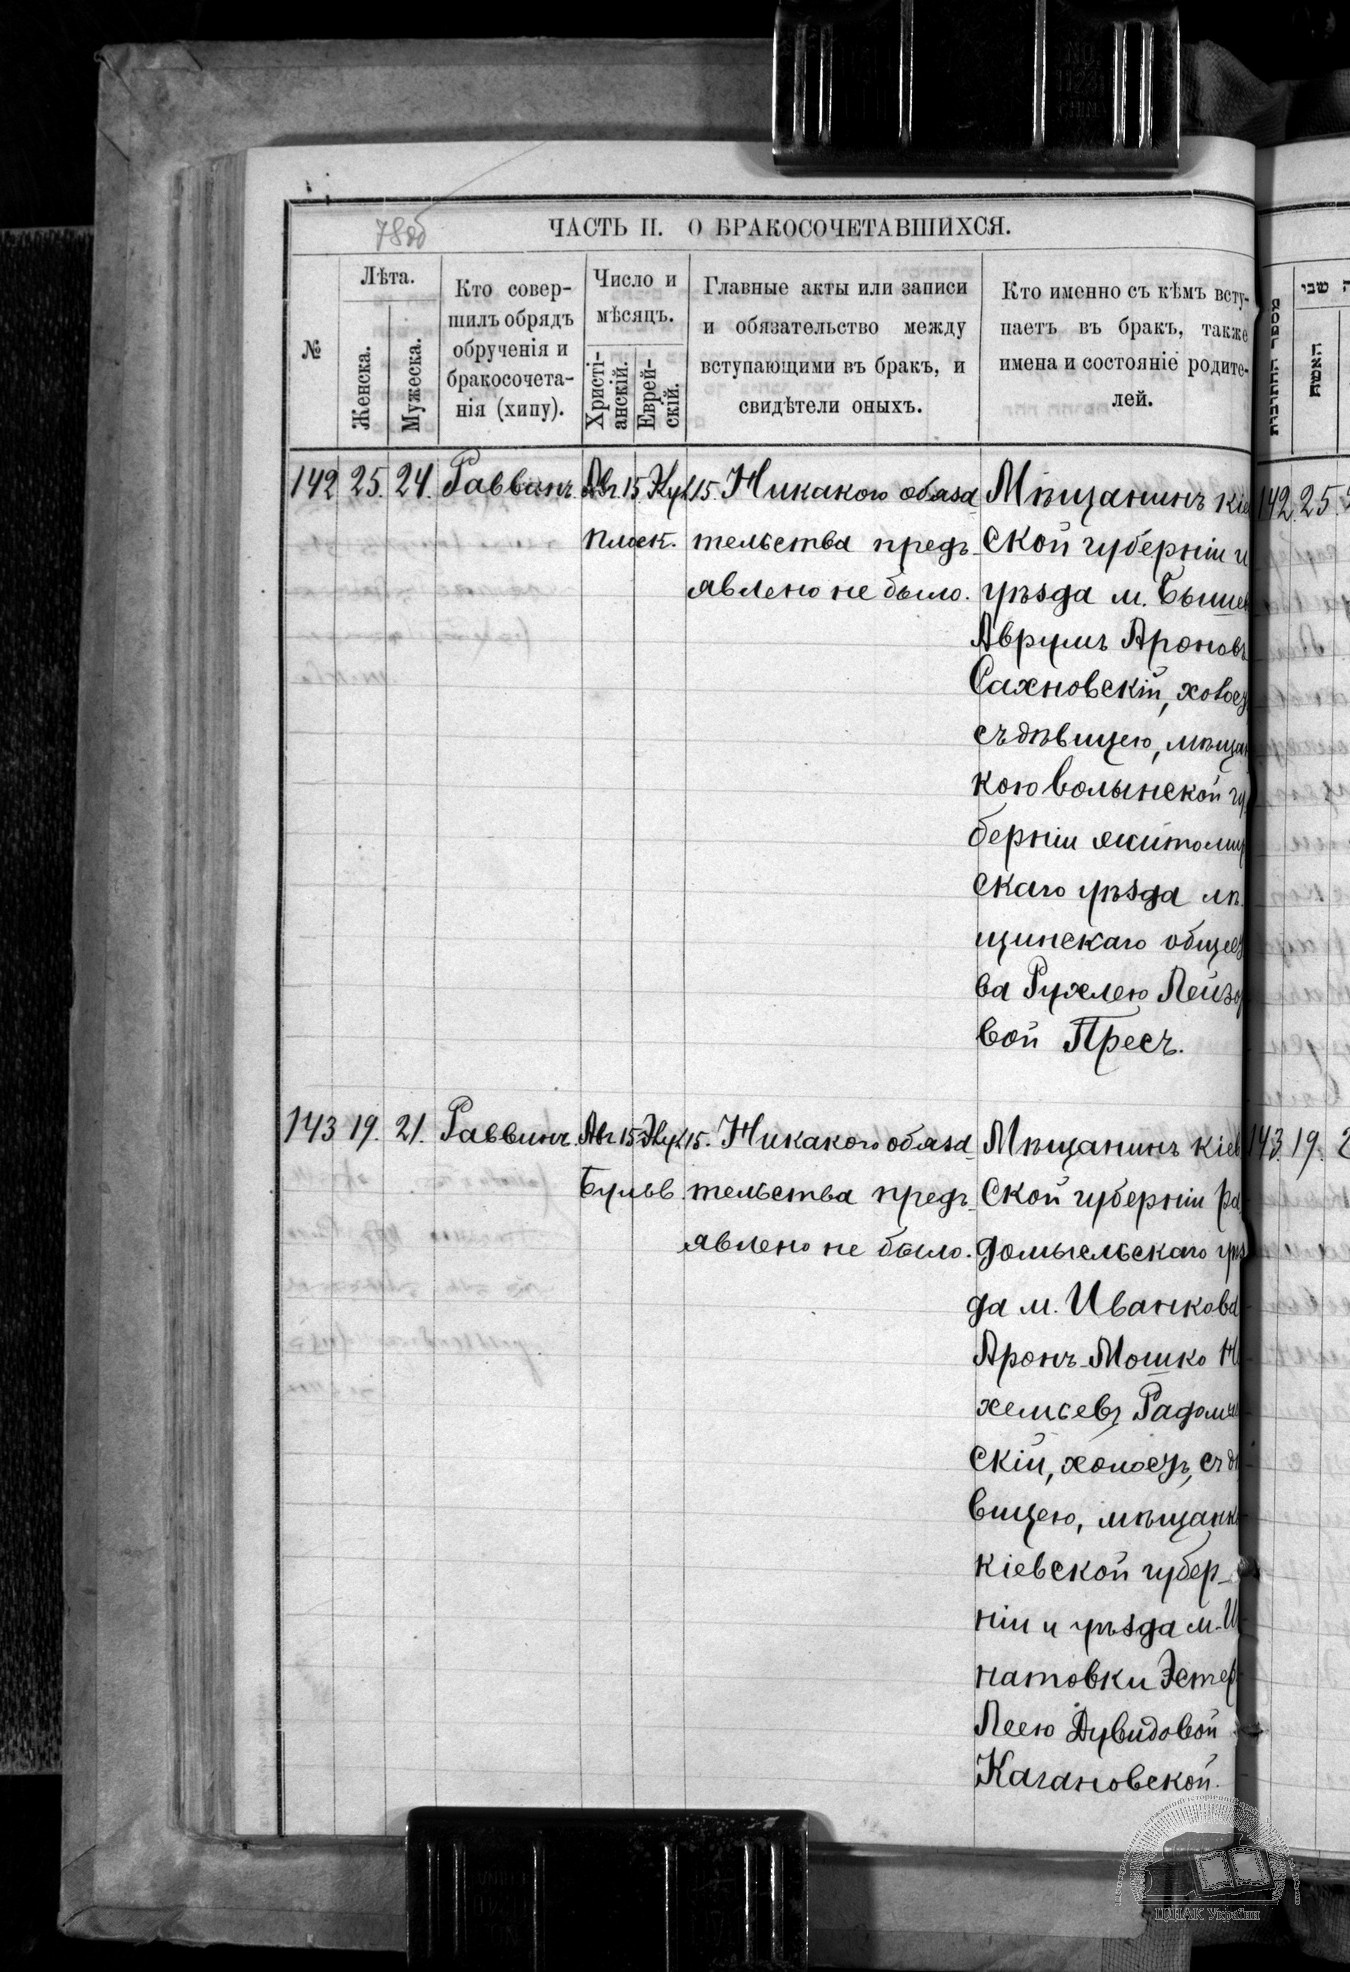 78об
ЧАСТЬ II. О БРАКОСОЧЕТАВШИХСЯ.
№
Лѣта.
Женска.
Мужеска.
Кто совер-
шилъ обрядъ
обрученія и
бракосочета-
нія (хипу).
Число и
мѣсяцъ.
Христі-
анскій.
Еврей-
скій.
Главные акты или записи
и обязательство между
вступающими въ бракъ, и
свидѣтели оныхъ.
Кто именно съ кѣмъ всту-
паетъ въ бракъ, также
имена и состояніе родите-
лей.
142 25. 24. Раввинъ. Авг. 15.
Плоск.
15. Никакого обяза-
тельства предъ-
явлено не было.
Мѣщанинъ кіев
ской губерніи и
уѣзда м. Бышев
Аврумъ Ароновъ
Сахновскій, холос
съ дѣвицею, мѣщан
кою волынской гу
берніи житомир
скаго уѣзда мѣ
щинскаго общес
ва Рухлею Лейзо
вой Пресъ.
143 19. 21. Раввинъ. Авг. 15
Бульв.
15. Никакого обяза-
тельства предъ-
явлено не было.
Мѣщанинъ кіев
ской губерніи ра
домысльскаго уѣз
да м. Иванкова
Аронъ-Мошко Н
хемьевъ Радомы
скій, холостъ, съ дѣ
вицею, мѣщанк
кіевской губер-
ніи и уѣзда м. И
натовки Эстер
Леею Дувидовой
Кагановской.
מספר החתונות
האשה
142. 25.
143. 19. 2
ЦДІАК України